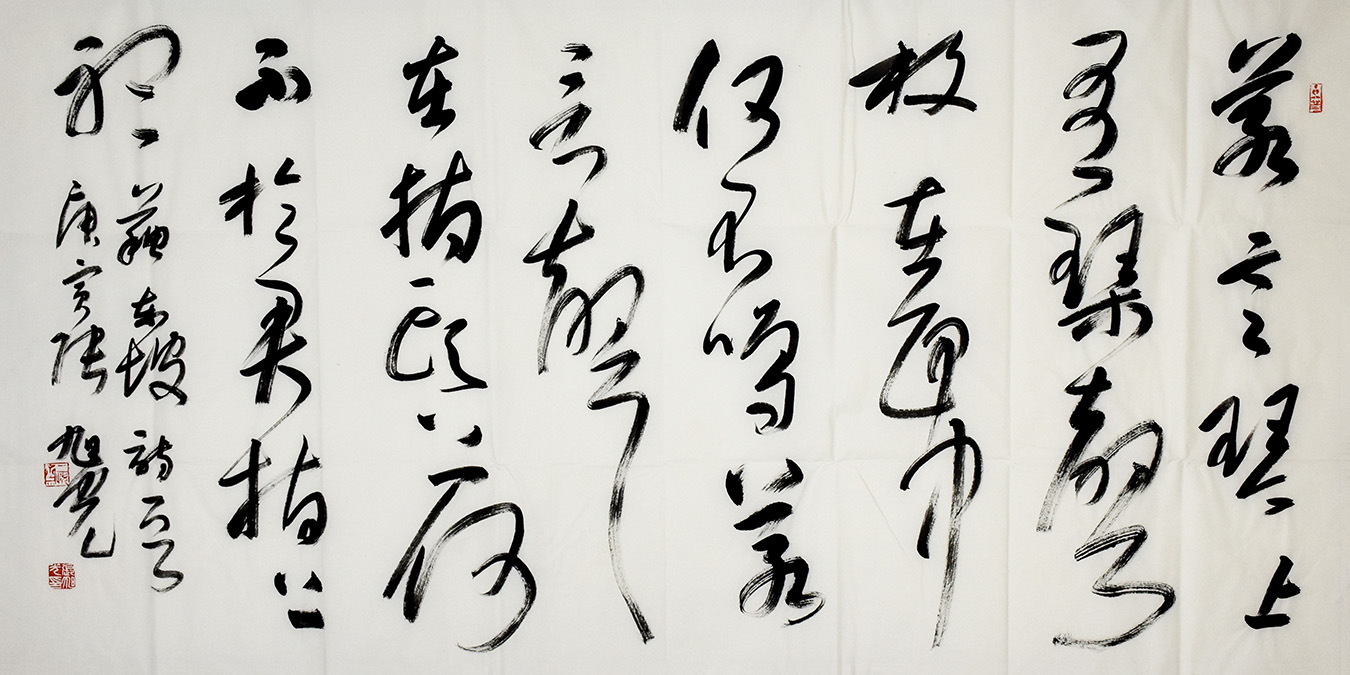 若言琴上
有琴聲
放在匣中
何不鳴若
言聲
在指頭上何
不於君指上
聽
蘇東坡詩一首
庚寅張旭光